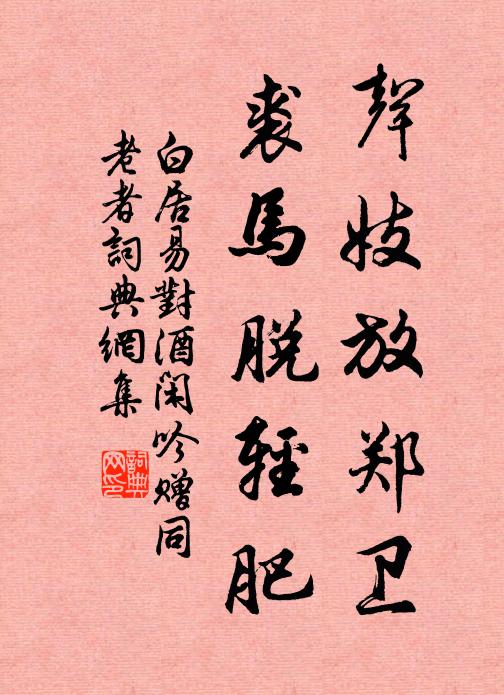 聲妓放郑卫
裘馬脱輕肥
白居易對酒闲吟赠同
老者詞典網集
詞典网印